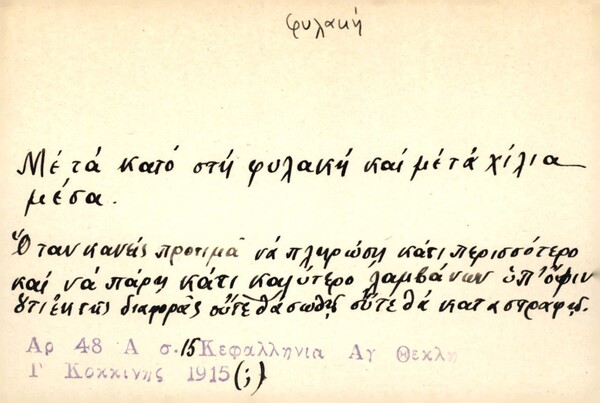 φυλακή
Μέ τά κατό στή φυλακή καί μέ τά χίλια
μέσα.
Ὅταν κανείς προτιμᾶ νά πληρώση κάτι περισσότερο
καί νά πάρη κάτι καλύτερο λαμβάνων ὑπ' ὄψιν
ὅτι ἐκ τῆς διαφορᾶς οὔτε θά σωθῇ οὔτε θά καταστραφῇ.
Αρ 48 Α σ. 15 Κεφαλληνια Αγ Θεκλη
Γ Κοκκινης 1915 (;)